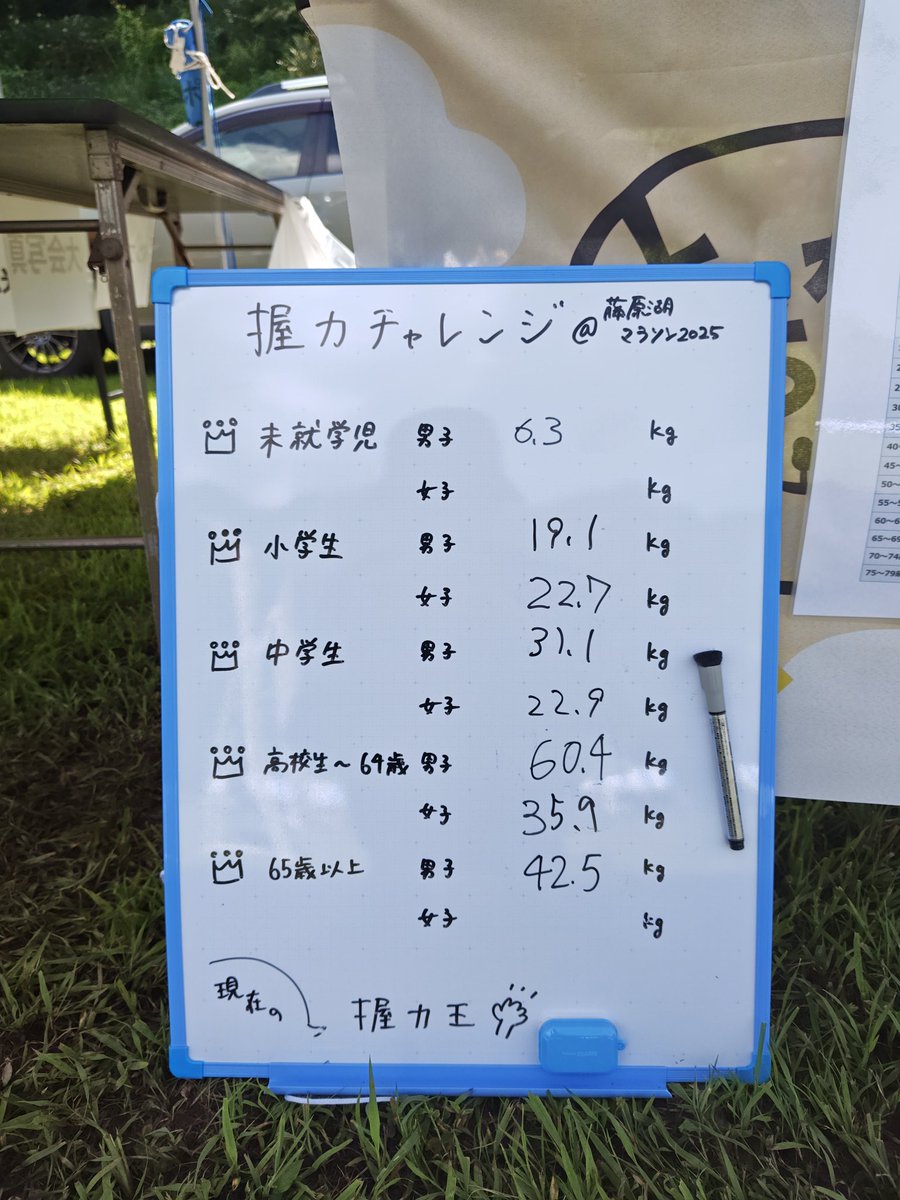 握力チャレンジ@藤原湖
マラソン2025
未就学児 男子 6.3 kg
女子 kg
小学生 男子 19.1 kg
女子 22.7 kg
中学生 男子 31.1 kg
女子 22.9 kg
高校生〜64歳 男子 60.4 kg
女子 35.9 kg
65歳以上 男子 42.5 kg
女子 kg
現在の
握力王
大会写真
40〜
45〜
50〜
55〜5
60〜6
65〜69
70〜74歳
75〜79歳